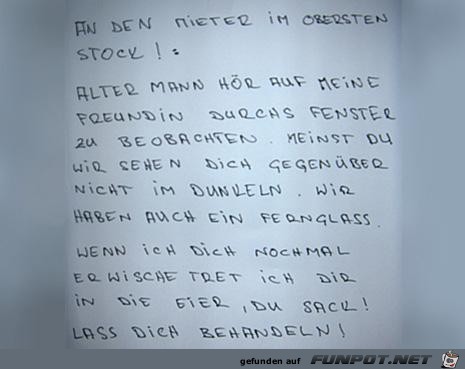 AN DEN MIETER IM OBERSTEN
STOCK! :
ALTER MANN HÖR AUF MEINE
FREUNDIN DURCHS FENSTER
ZU BEOBACHTEN. MEINST DU
WIR SEHEN DICH GEGENÜBER
NICHT IM DUNKELN. WIR
HABEN AUCH EIN FERNGLASS.
WENN ICH DICH NOCHMAL
ERWISCHE TRET ICH DIR
IN DIE EIER, DU SACK!
LASS DICH BEHANDELN!
gefunden auf FUNPOT.NET